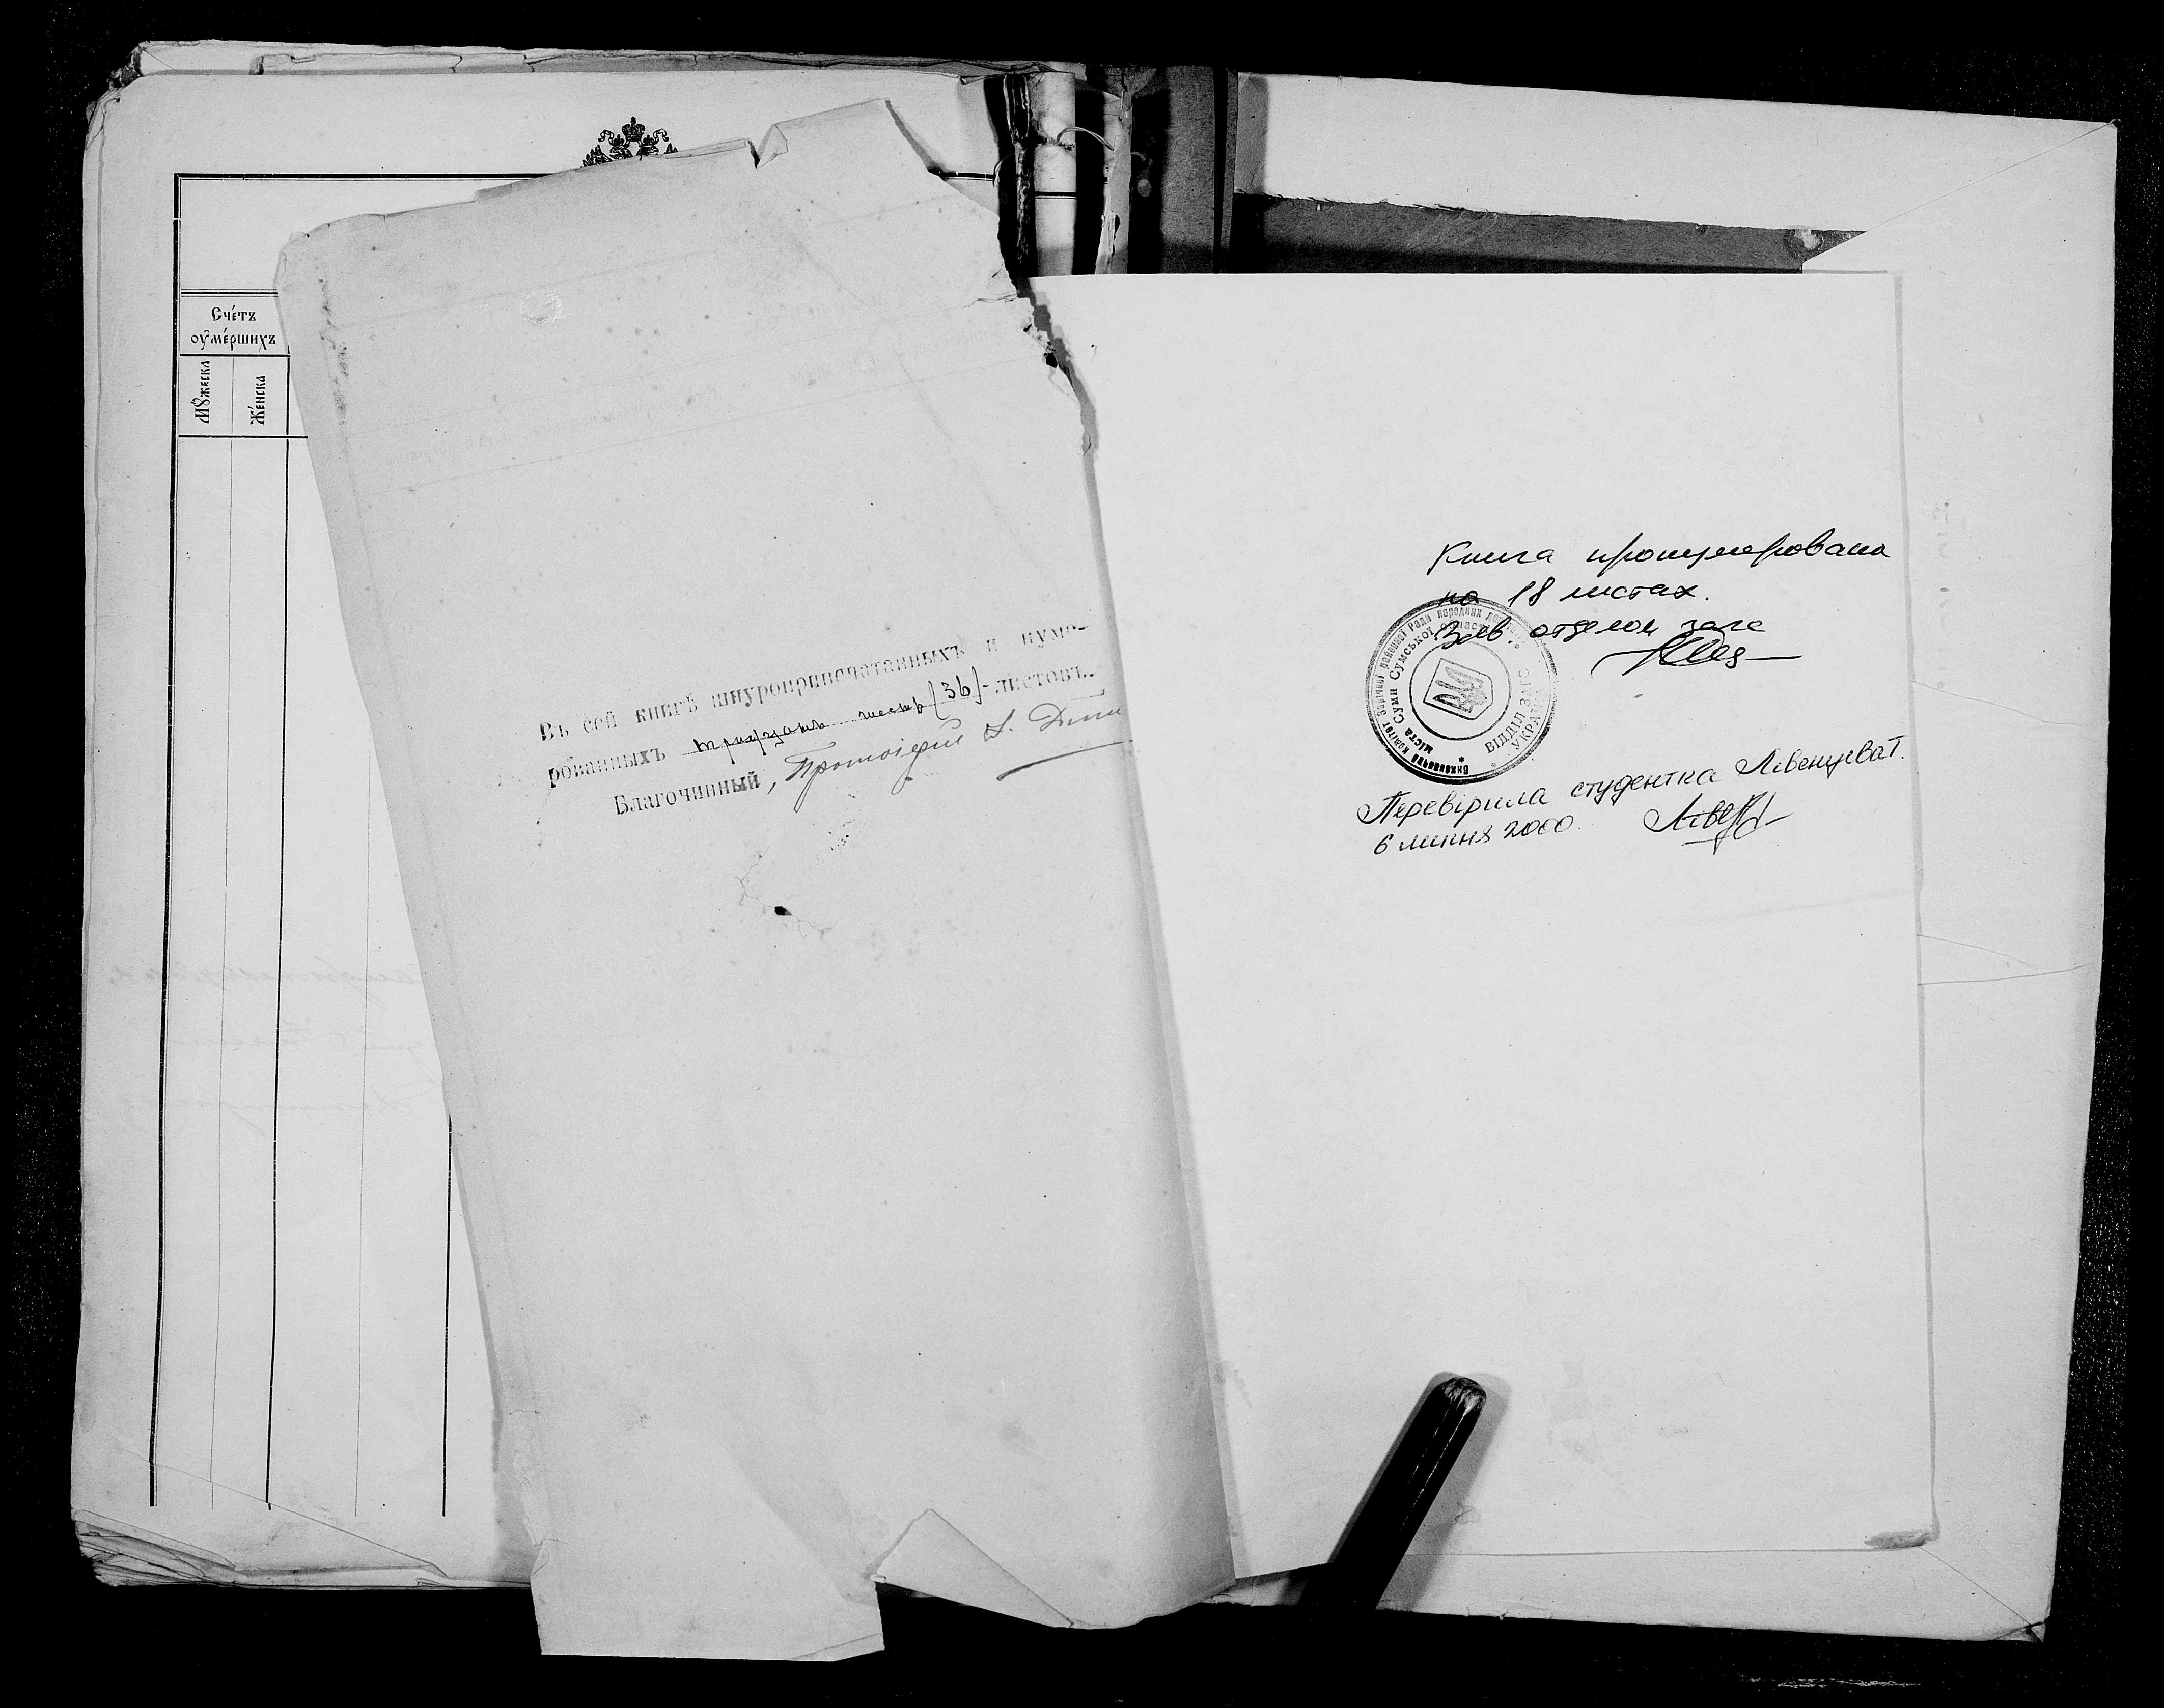 Сче́тъ
оу҆ме́ршихъ
Мꙋжеска
Же́нска
Въ сей книгѣ шнуроприпечатанныхъ и нуме-
рованныхъ тридцать шесть (36) листовъ.
Благочинный, Протоіерей
Книга пронумерована
на 18 листах.
Зав. отделом загс
Виконавчий комітет Зарічної районної Ради народних
міста Суми Сумської області
ВІДДІЛ ЗАГС
УКРАЇНА
Перевірила студентка Лівенцева Т.
6 липня 2000.